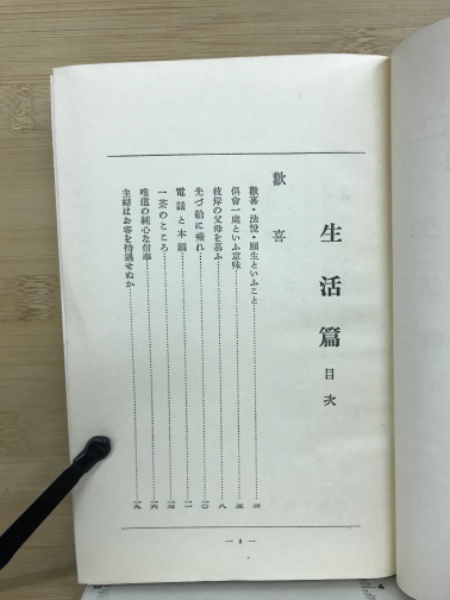 生活篇 目次
歡喜
歡喜・法悅・願生といふこと……三
俱會一處といふ意味……五
彼岸の父母を慕ふ……八
先づ船に乘れ……一〇
電話と本願……一一
一茶のこころ……一三
唯道の純心な信事……一六
主婦はお客を待遇せぬか……一九